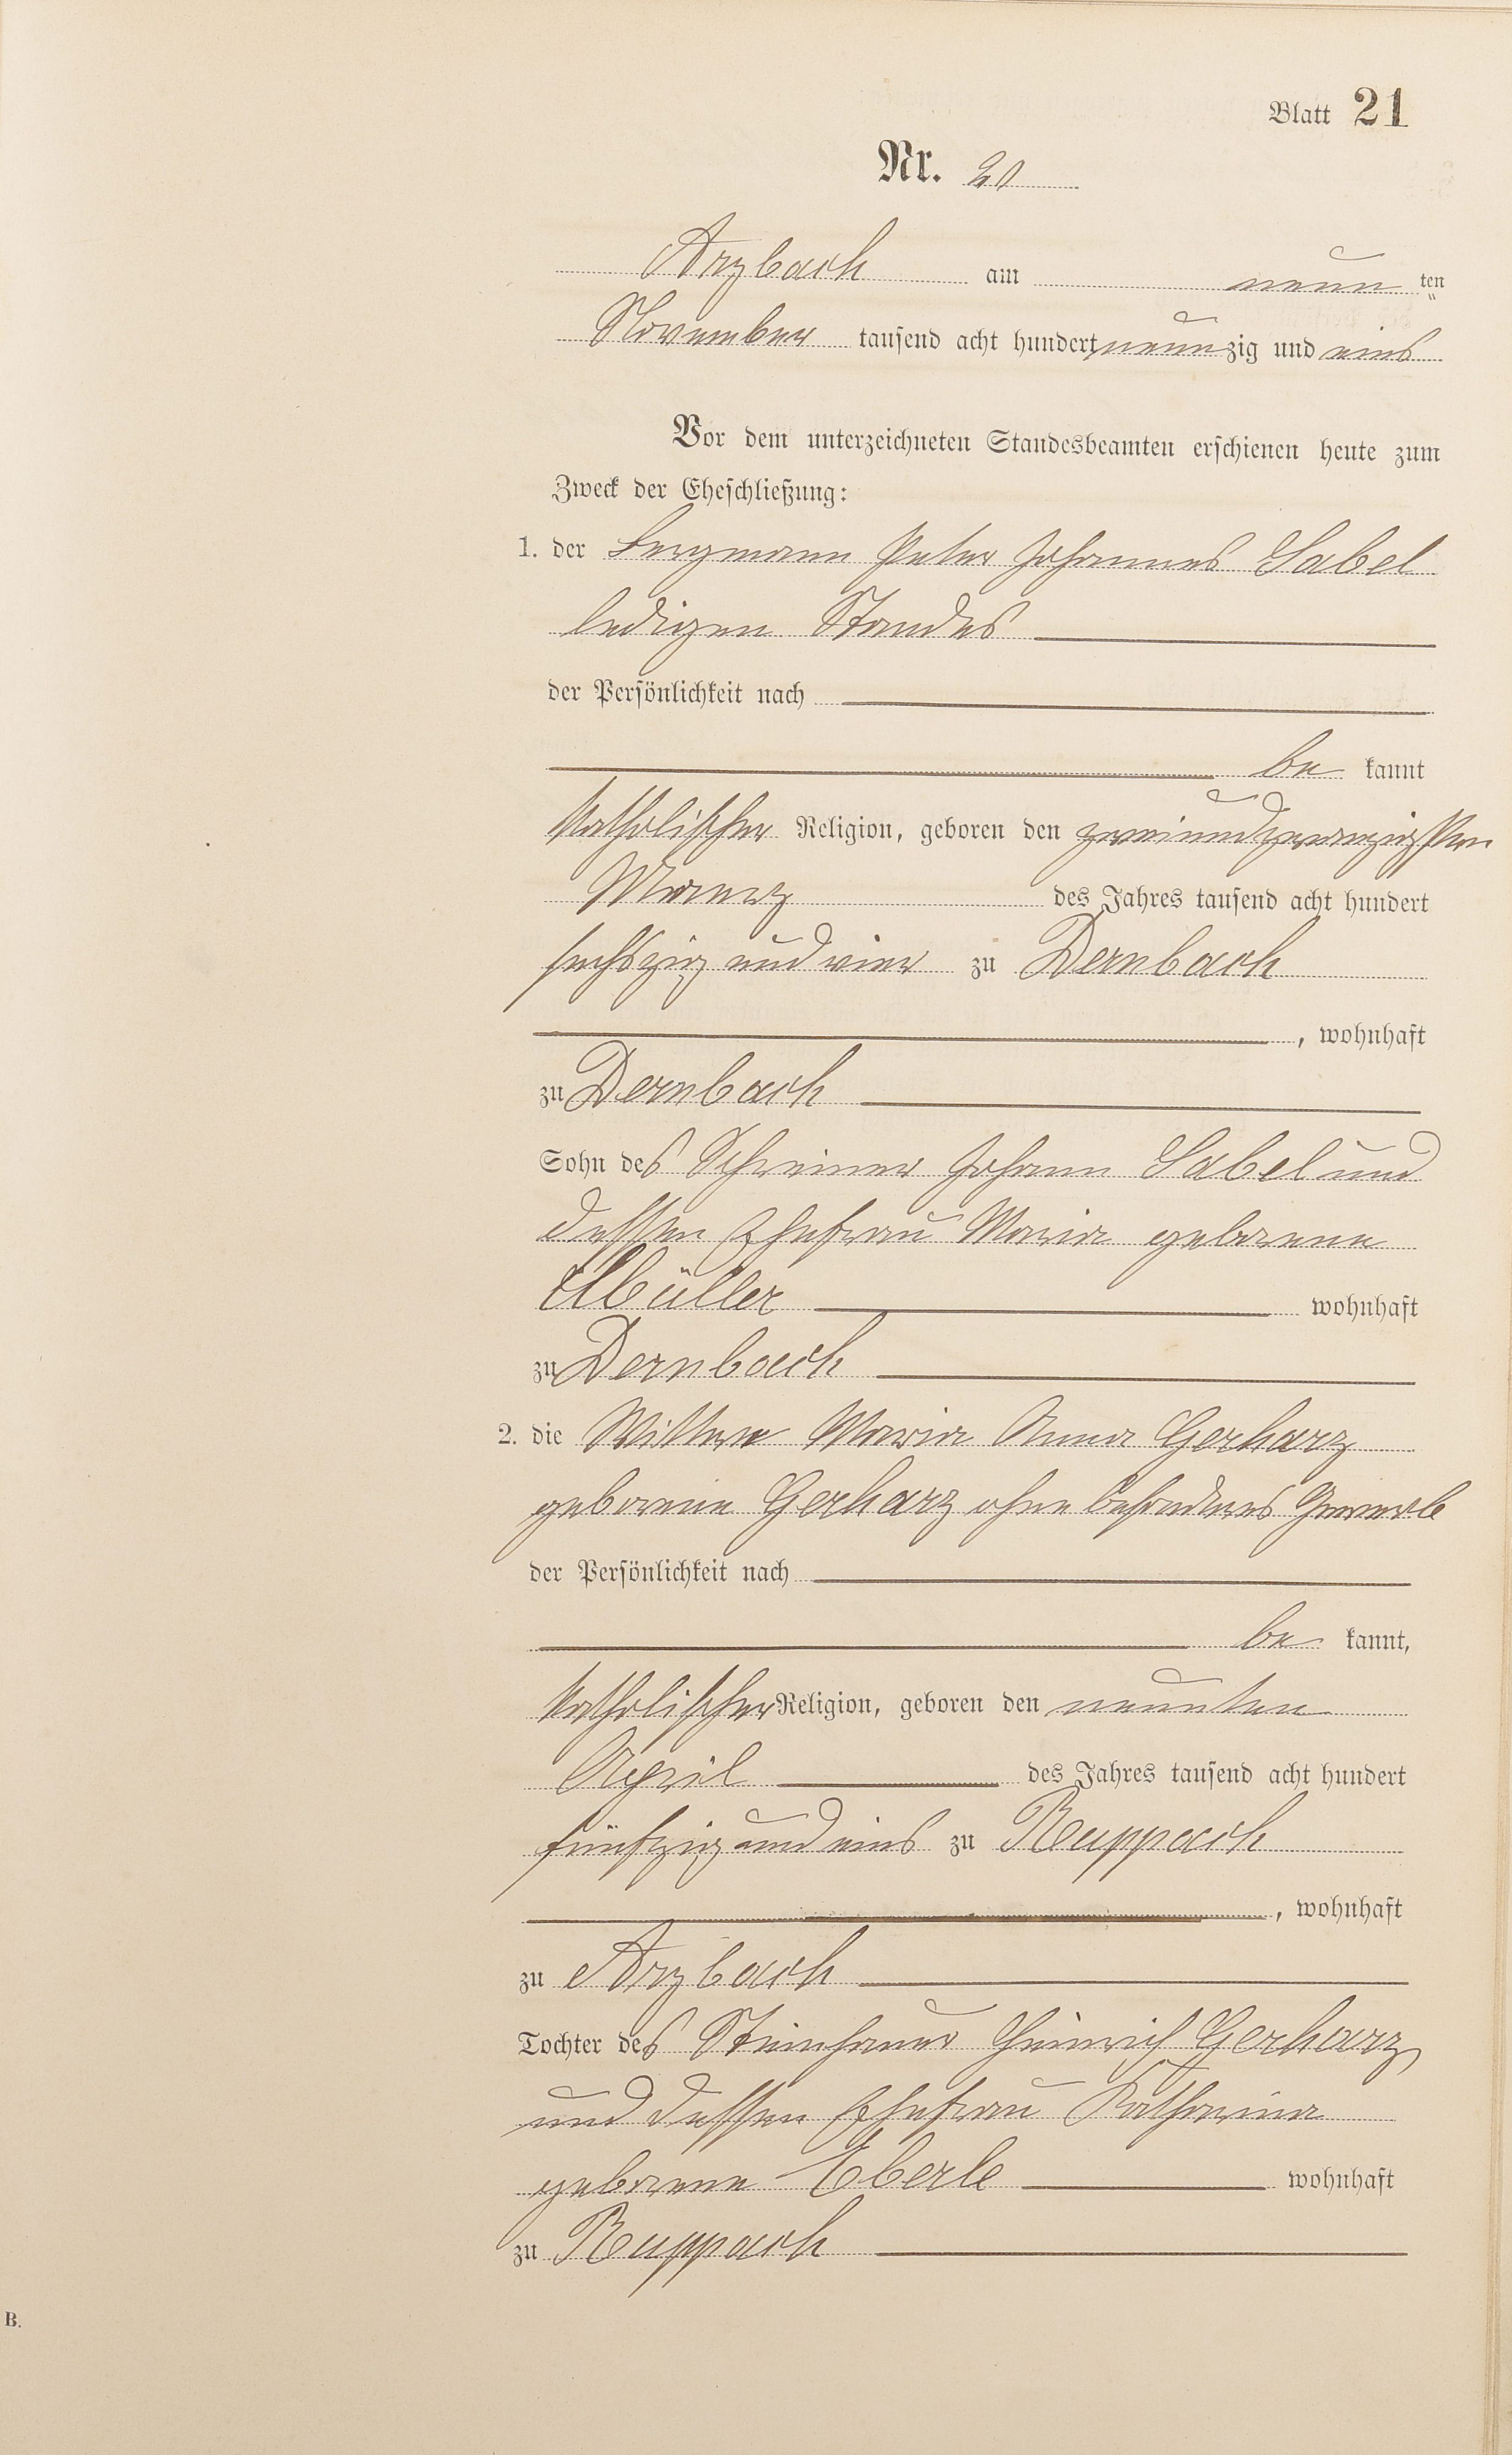 Blatt 21
Nr. 20
Arzbach am neun ten
November tausend acht hundert neunzig und eins
Vor dem unterzeichneten Standesbeamten erschienen heute zum
Zweck der Eheschließung:
1. der Bergmann Peter Johannes Sabel
ledigen Standes
der Persönlichkeit nach
be kannt
katholischer Religion, geboren den zweiundzwanzigsten
Maerz des Jahres tausend acht hundert
sechszig und vier zu Dernbach
, wohnhaft
zu Dernbach
Sohn des Schreiner Johann Sabel und
dessen Ehefrau Maria geborene
Müller wohnhaft
zu Dernbach
2. die Wittwe Maria Anna Gerharz
geborene Gerharz ohne besonderes Gewerbe
der Persönlichkeit nach
be kannt,
katholischer Religion, geboren den neunten
April des Jahres tausend acht hundert
fünfzig und eins zu Ruppach
, wohnhaft
zu Arzbach
Tochter des Steinhauer Heinrich Gerharz
und dessen Ehefrau Katharina
geborene Eberle wohnhaft
zu Ruppach
B.